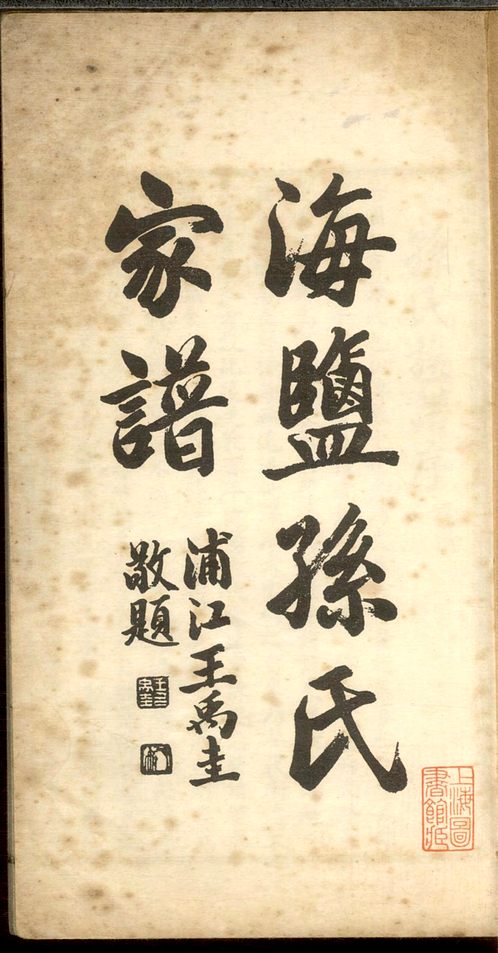 海鹽孫氏
家譜
浦江王禹圭
敬題
上海圖
書館藏